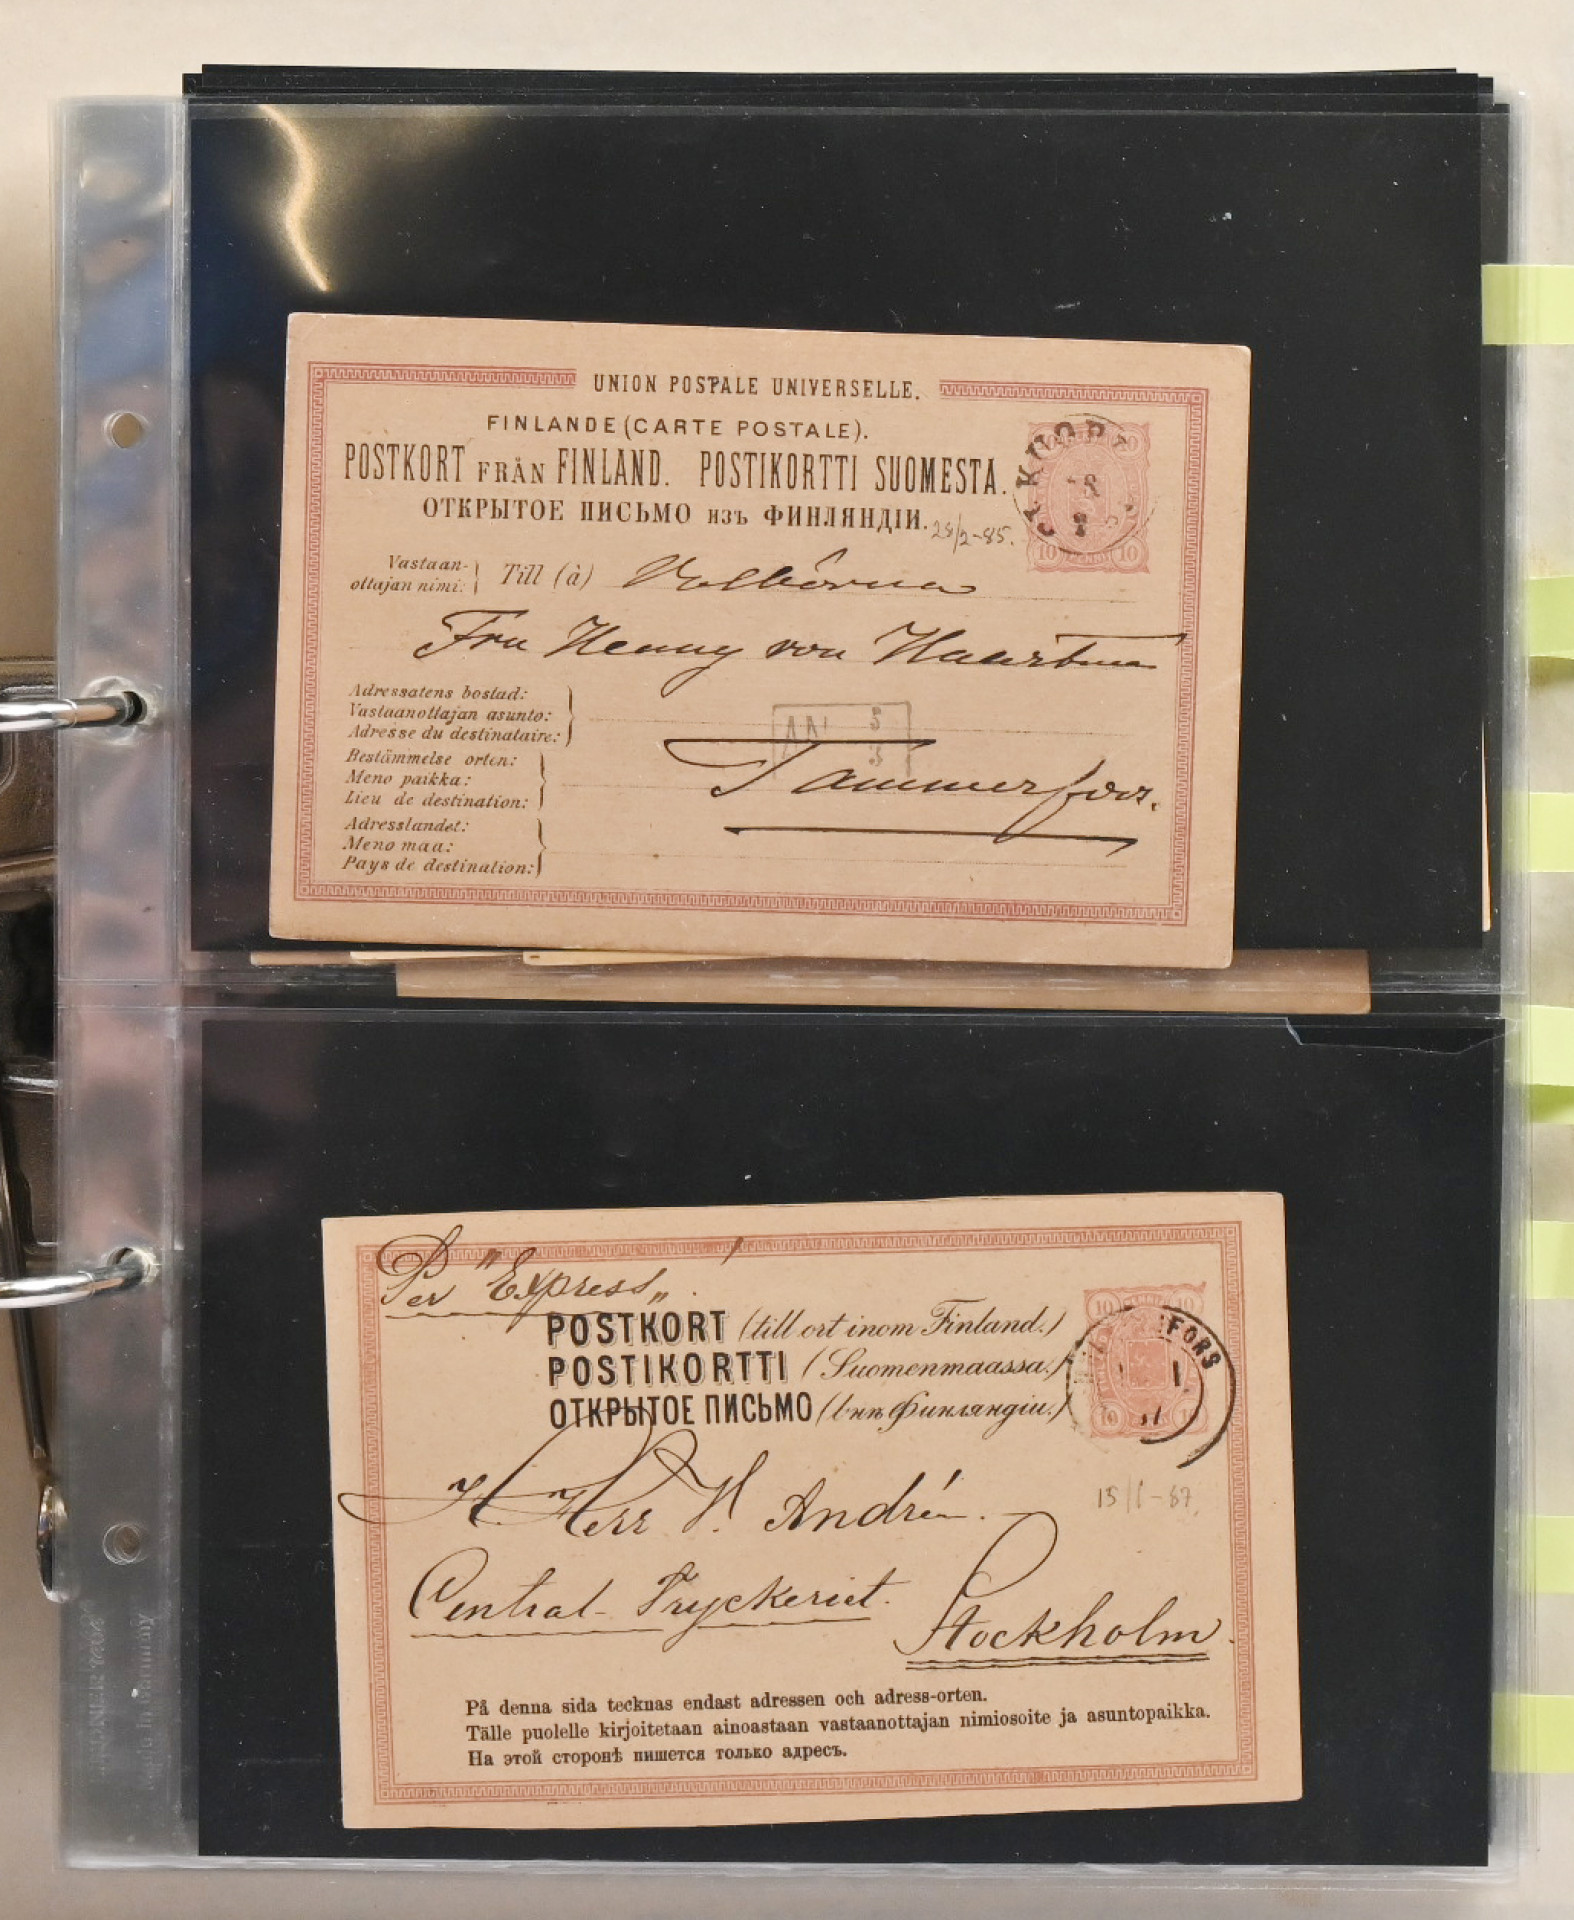 UNION POSTALE UNIVERSELLE.
FINLANDE (CARTE POSTALE).
POSTKORT FRÅN FINLAND. POSTIKORTTI SUOMESTA.
ОТКРЫТОЕ ПИСЬМО изъ ФИНЛЯНДІИ.
28/2-85.
10 10
Vastaan-
ottajan nimi: Till (à) Välborna
Fru Henny von Haartman
Adressatens bostad:
Vastaanottajan asunto:
Adresse du destinataire:
Bestämmelse orten:
Meno paikka:
Lieu de destination:
Tammerfors.
Adresslandet:
Meno maa:
Pays de destination:
Per "Express".
POSTKORT (till ort inom Finland.)
POSTIKORTTI (Suomenmaassa.)
ОТКРЫТОЕ ПИСЬМО (внѣ Финляндіи.)
10 PENNIÄ 10
IFORS
10 10
15/1-87.
H. Herr H. Andrén.
Central-Tryckeriet.
Stockholm.
På denna sida tecknas endast adressen och adress-orten.
Tälle puolelle kirjoitetaan ainoastaan vastaanottajan nimiosoite ja asuntopaikka.
На этой сторонѣ пишется только адресъ.
Made in Germany